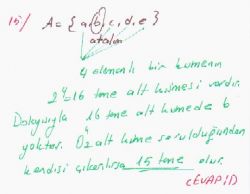 15/ A = { a, b, c, d, e }
atalım
4 elemanlı bir kümenin
2⁴=16 tane alt kümesi vardır.
Dolayısıyla 16 tane alt kümede b
yoktur. Öz alt küme sorulduğundan
kendisi çıkarılırsa 15 tane olur.
CEVAP: D